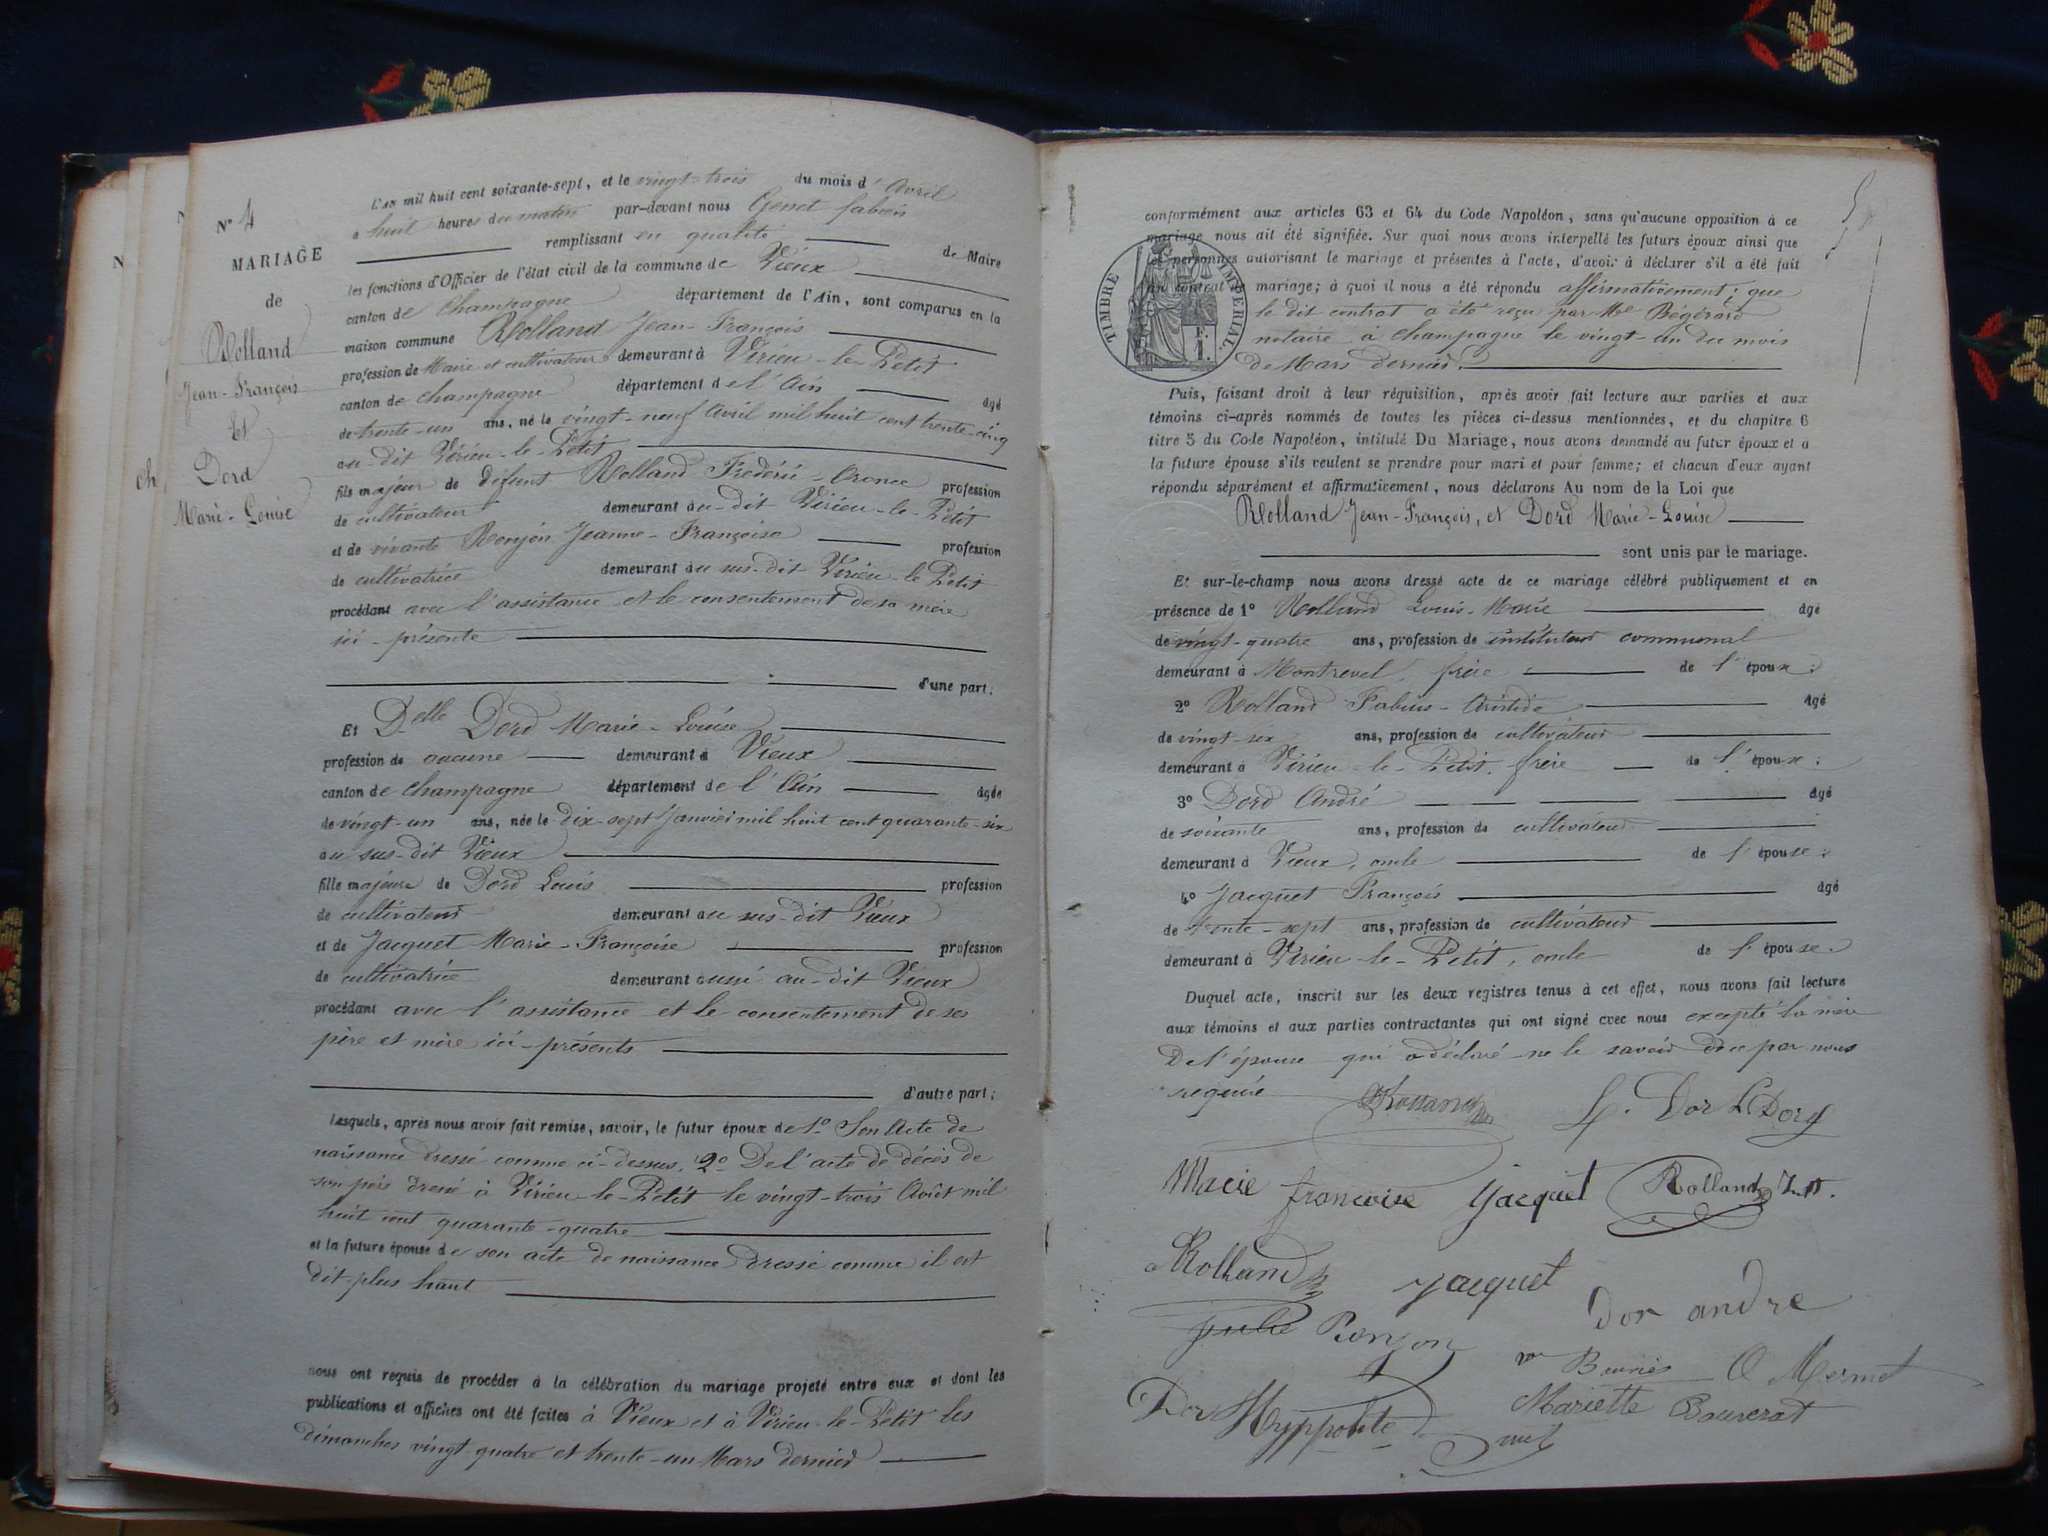 N° 4
MARIAGE
de
Rolland
Jean-François
Et
Dord
Marie-Louise
L'an mil huit cent soixante-sept, et le vingt-trois du mois d'Avril
a huit heures du matin par-devant nous Genet fabien
remplissant en qualité de Maire
les fonctions d'Officier de l'état civil de la commune de Vieux
canton de Champagne département de l'Ain, sont comparus en la
maison commune Rolland Jean-François
profession de Maire et cultivateur demeurant à Virieu-le-Petit
canton de Champagne département de l'Ain âgé
de trente-un ans, né le vingt-neuf Avril mil huit cent trente-cinq
au-dit Virieu-le-Petit
fils majeur de défunt Rolland Frédéric- profession
de cultivateur demeurant au-dit Virieu-le-Petit
et de vivante Ronjon Jeanne-Françoise profession
de cultivatrice demeurant au sus-dit Virieu-le-Petit
procédant avec l'assistance et le consentement de sa mère
ici-présente
d'une part;
Et Delle Dord Marie-Louise
profession de aucune demeurant à Vieux
canton de Champagne département de l'Ain âgée
de vingt-un ans, née le dix-sept Janvier mil huit cent quarante-six
au sus-dit Vieux
fille majeure de Dord Louis profession
de cultivateur demeurant au sus-dit Vieux
et de Jacquet Marie-Françoise profession
de cultivatrice demeurant aussi au-dit Vieux
procédant avec l'assistance et le consentement de ses
père et mère ici-présents
d'autre part;
lesquels, après nous avoir fait remise, savoir, le futur époux de 1° Son Acte de
naissance dressé comme ci-dessus. 2° De l'acte de décès de
son père dressé à Virieu-le-Petit le vingt-trois Août mil
huit cent quarante-quatre
et la future épouse de son acte de naissance dressé comme il est
dit plus haut
nous ont requis de procéder à la célébration du mariage projeté entre eux et dont les
publications et affiches ont été faites à Vieux et à Virieu-le-Petit les
dimanches vingt quatre et trente-un Mars dernier
conformément aux articles 63 et 64 du Code Napoléon, sans qu'aucune opposition à ce
mariage nous ait été signifiée. Sur quoi nous avons interpellé les futurs époux ainsi que
les personnes autorisant le mariage et présentes à l'acte, d'avoir à déclarer s'il a été fait
un contrat de mariage; à quoi il nous a été répondu affirmativement; que
le dit contrat a été reçu par Me Begérard
notaire à Champagne le vingt-un du mois
de Mars dernier.
TIMBRE IMPERIAL
1 F.
Puis, faisant droit à leur réquisition, après avoir fait lecture aux parties et aux
témoins ci-après nommés de toutes les pièces ci-dessus mentionnées, et du chapitre 6
titre 5 du Code Napoléon, intitulé Du Mariage, nous avons demandé au futur époux et a
la future épouse s'ils veulent se prendre pour mari et pour femme; et chacun d'eux ayant
répondu séparément et affirmativement, nous déclarons Au nom de la Loi que
Rolland Jean-François, et Dord Marie-Louise
sont unis par le mariage.
Et sur-le-champ nous avons dressé acte de ce mariage célébré publiquement et en
présence de 1° Rolland Louis-Marie âgé
de vingt-quatre ans, profession de instituteur communal
demeurant à Montrevel, frère de l'époux;
2° Rolland Fabius-Aristide âgé
de vingt-six ans, profession de cultivateur
demeurant à Virieu-le-Petit, frère de l'époux;
3° Dord André âgé
de soixante ans, profession de cultivateur
demeurant à Vieux, oncle de l'épouse;
4° Jacquet François âgé
de trente-sept ans, profession de cultivateur
demeurant à Virieu-le-Petit, oncle de l'épouse.
Duquel acte, inscrit sur les deux registres tenus à cet effet, nous avons fait lecture
aux témoins et aux parties contractantes qui ont signé avec nous excepté la mère
De l'épouse qui a déclaré ne le savoir de ce par nous
requise
Rolland L. Dor L Dord
Marie francoise Jacquet Rolland
Rolland Jacquet Dor andre
Julie Ronjon
O Mermet
Dor Hyppolite Mariette Bouvrat